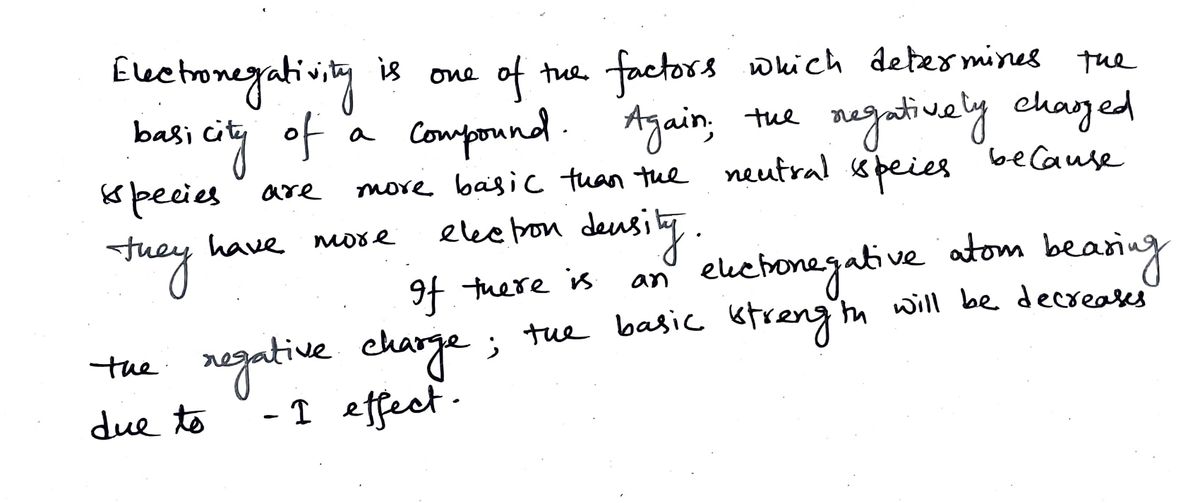 Electronegativity is one of the factors which determines the
basicity of a compound. Again; the negatively charged
species are more basic than the neutral speies because
they have more electron density.
If there is an electronegative atom bearing
the negative charge; the basic strength will be decreases
due to -I effect.